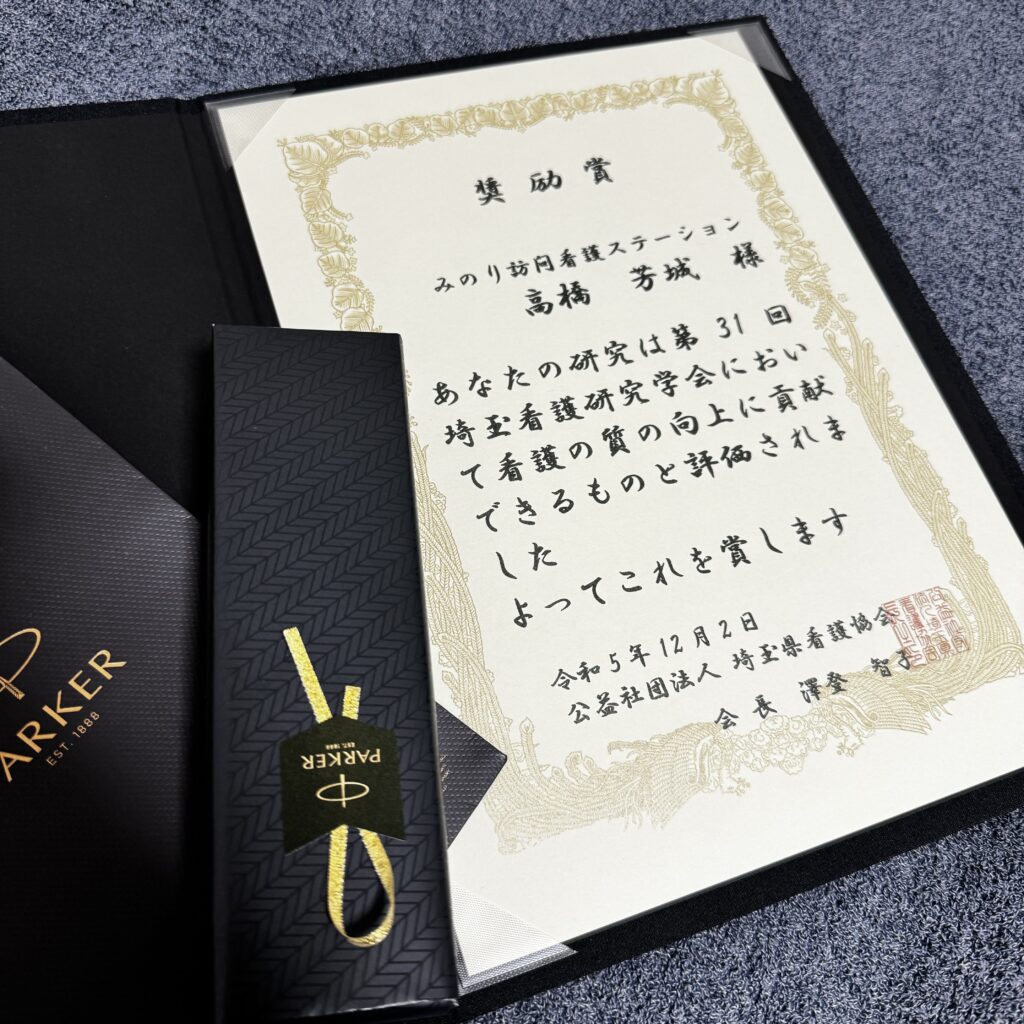 奨励賞
みのり訪問看護ステーション
高橋 芳城 様
あなたの研究は第31回
埼玉看護研究学会におい
て看護の質の向上に貢献
できるものと評価されま
した
よってこれを賞します
令和5年12月2日
公益社団法人 埼玉県看護協会
会長 澤登 智子
ARKER
EST. 1888
PARKER
EST. 1888